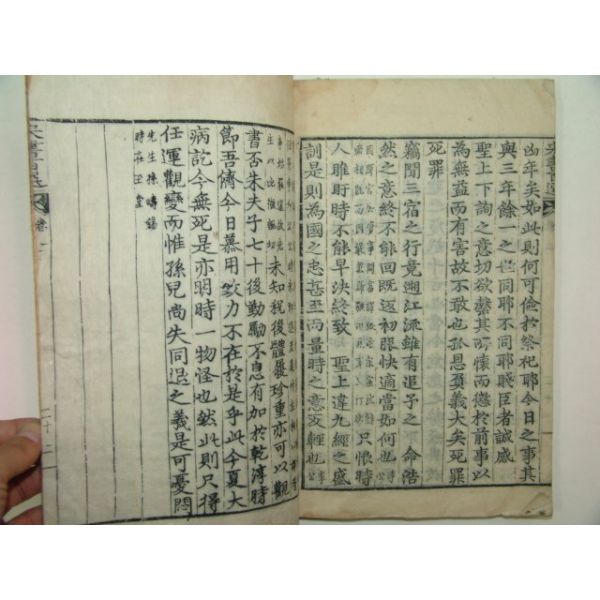 凶年矣如此則何可儉於祭祀耶今日之事其
與三年餘一之世同耶不同耶賤臣者誠感
聖上下詢之意切欲罄其所懷而應於前事以
為無益而有害故不敢也孤恩負義大矣死罪
死罪
竊聞三宿之行竟遡江流雖有追予之命浩
然之意終不能回旣返初服快適當如何也
只恨時
人雎盱時不能早決終致 聖上違九經之盛
訓是則為國之忠甚至而量時之意反輕也
未知稅後體履珍重亦可以觀
書否朱夫子七十後勤勵不息有加於乾淳時
節吾儕今日慕用致力不在於是乎此今夏大
病訖今無死是亦明時一物怪也然此則只得
任運觀變而惟孫兒尚失同退之義是可憂悶
先生孫疇錫
時在玉堂